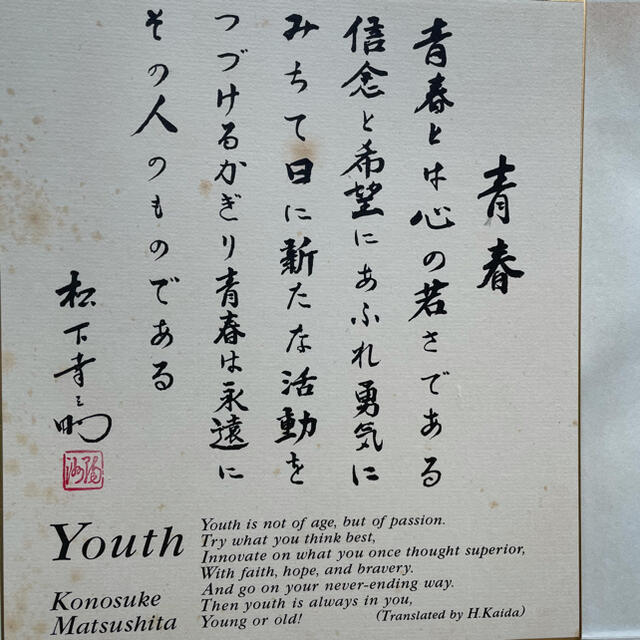 青春
青春とは心の若さである
信念と希望にあふれ勇気に
みちて日に新たな活動を
つづけるかぎり青春は永遠に
その人のものである
松下幸之助
Youth
Konosuke
Matsushita
Youth is not of age, but of passion.
Try what you think best,
Innovate on what you once thought superior,
With faith, hope, and bravery.
And go on your never-ending way.
Then youth is always in you,
Young or old!
(Translated by H.Kaida)